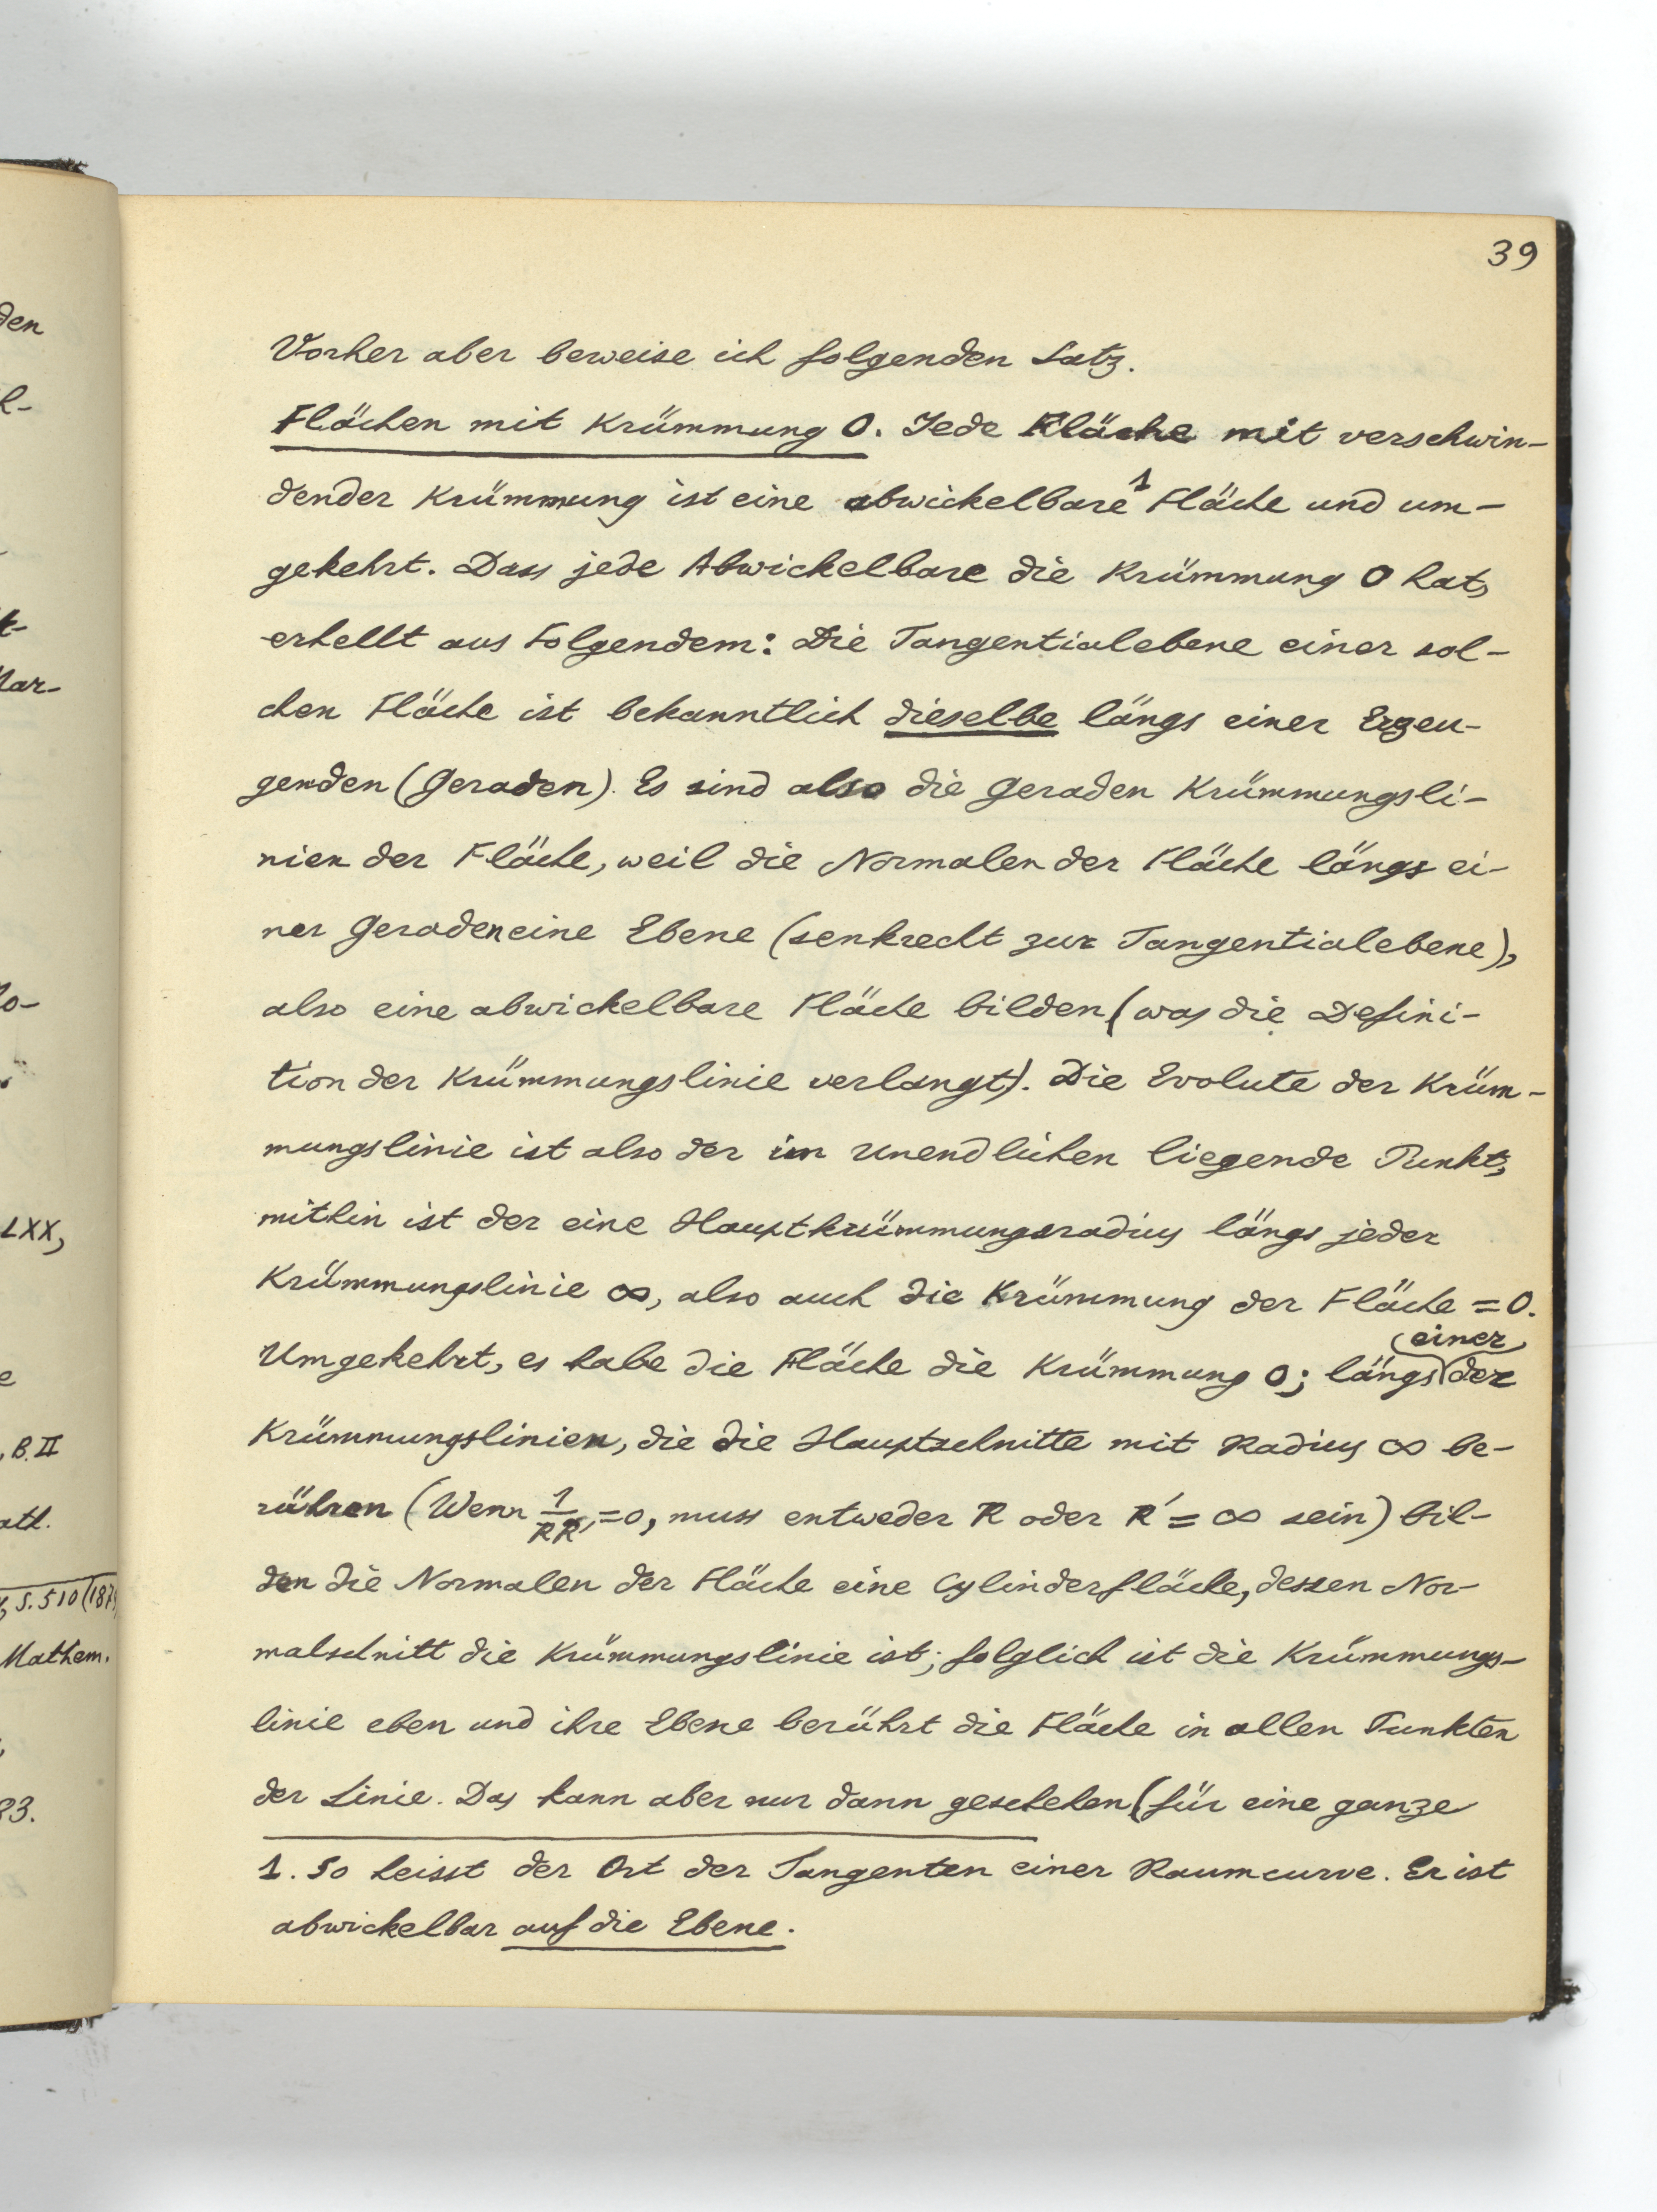 39
Vorher aber beweise ich folgenden Satz.
Flächen mit Krümmung 0. Jede Fläche mit verschwin-
dender Krümmung ist eine abwickelbare¹ Fläche und um-
gekehrt. Dass jede Abwickelbare die Krümmung 0 hat,
erhellt aus Folgendem: Die Tangentialebene einer sol-
chen Fläche ist bekanntlich dieselbe längs einer Erzeu-
genden (Geraden). Es sind also die Geraden Krümmungsli-
nien der Fläche, weil die Normalen der Fläche längs ei-
ner Geraden eine Ebene (senkrecht zur Tangentialebene),
also eine abwickelbare Fläche bilden (was die Defini-
tion der Krümmungslinie verlangt). Die Evolute der Krüm-
mungslinie ist also der im Unendlichen liegende Punkt,
mithin ist der eine Hauptkrümmungsradius längs jeder
Krümmungslinie ∞, also auch die Krümmung der Fläche = 0.
Umgekehrt, es habe die Fläche die Krümmung 0; längs (einer) der
Krümmungslinien, die die Hauptschnitte mit Radius ∞ be-
rühren (Wenn 1/RR' = 0, muss entweder R oder R' = ∞ sein) bil-
den die Normalen der Fläche eine Cylinderfläche, dessen Nor-
malschnitt die Krümmungslinie ist; folglich ist die Krümmungs-
linie eben und ihre Ebene berührt die Fläche in allen Punkten
der Linie. Das kann aber nur dann geschehen (für eine ganze
1. So heisst der Ort der Tangenten einer Raumcurve. Er ist
abwickelbar auf die Ebene.
den
k-
Mar-
LXX,
, B. II
ath.
, S. 510 (187
Mathem.
83.